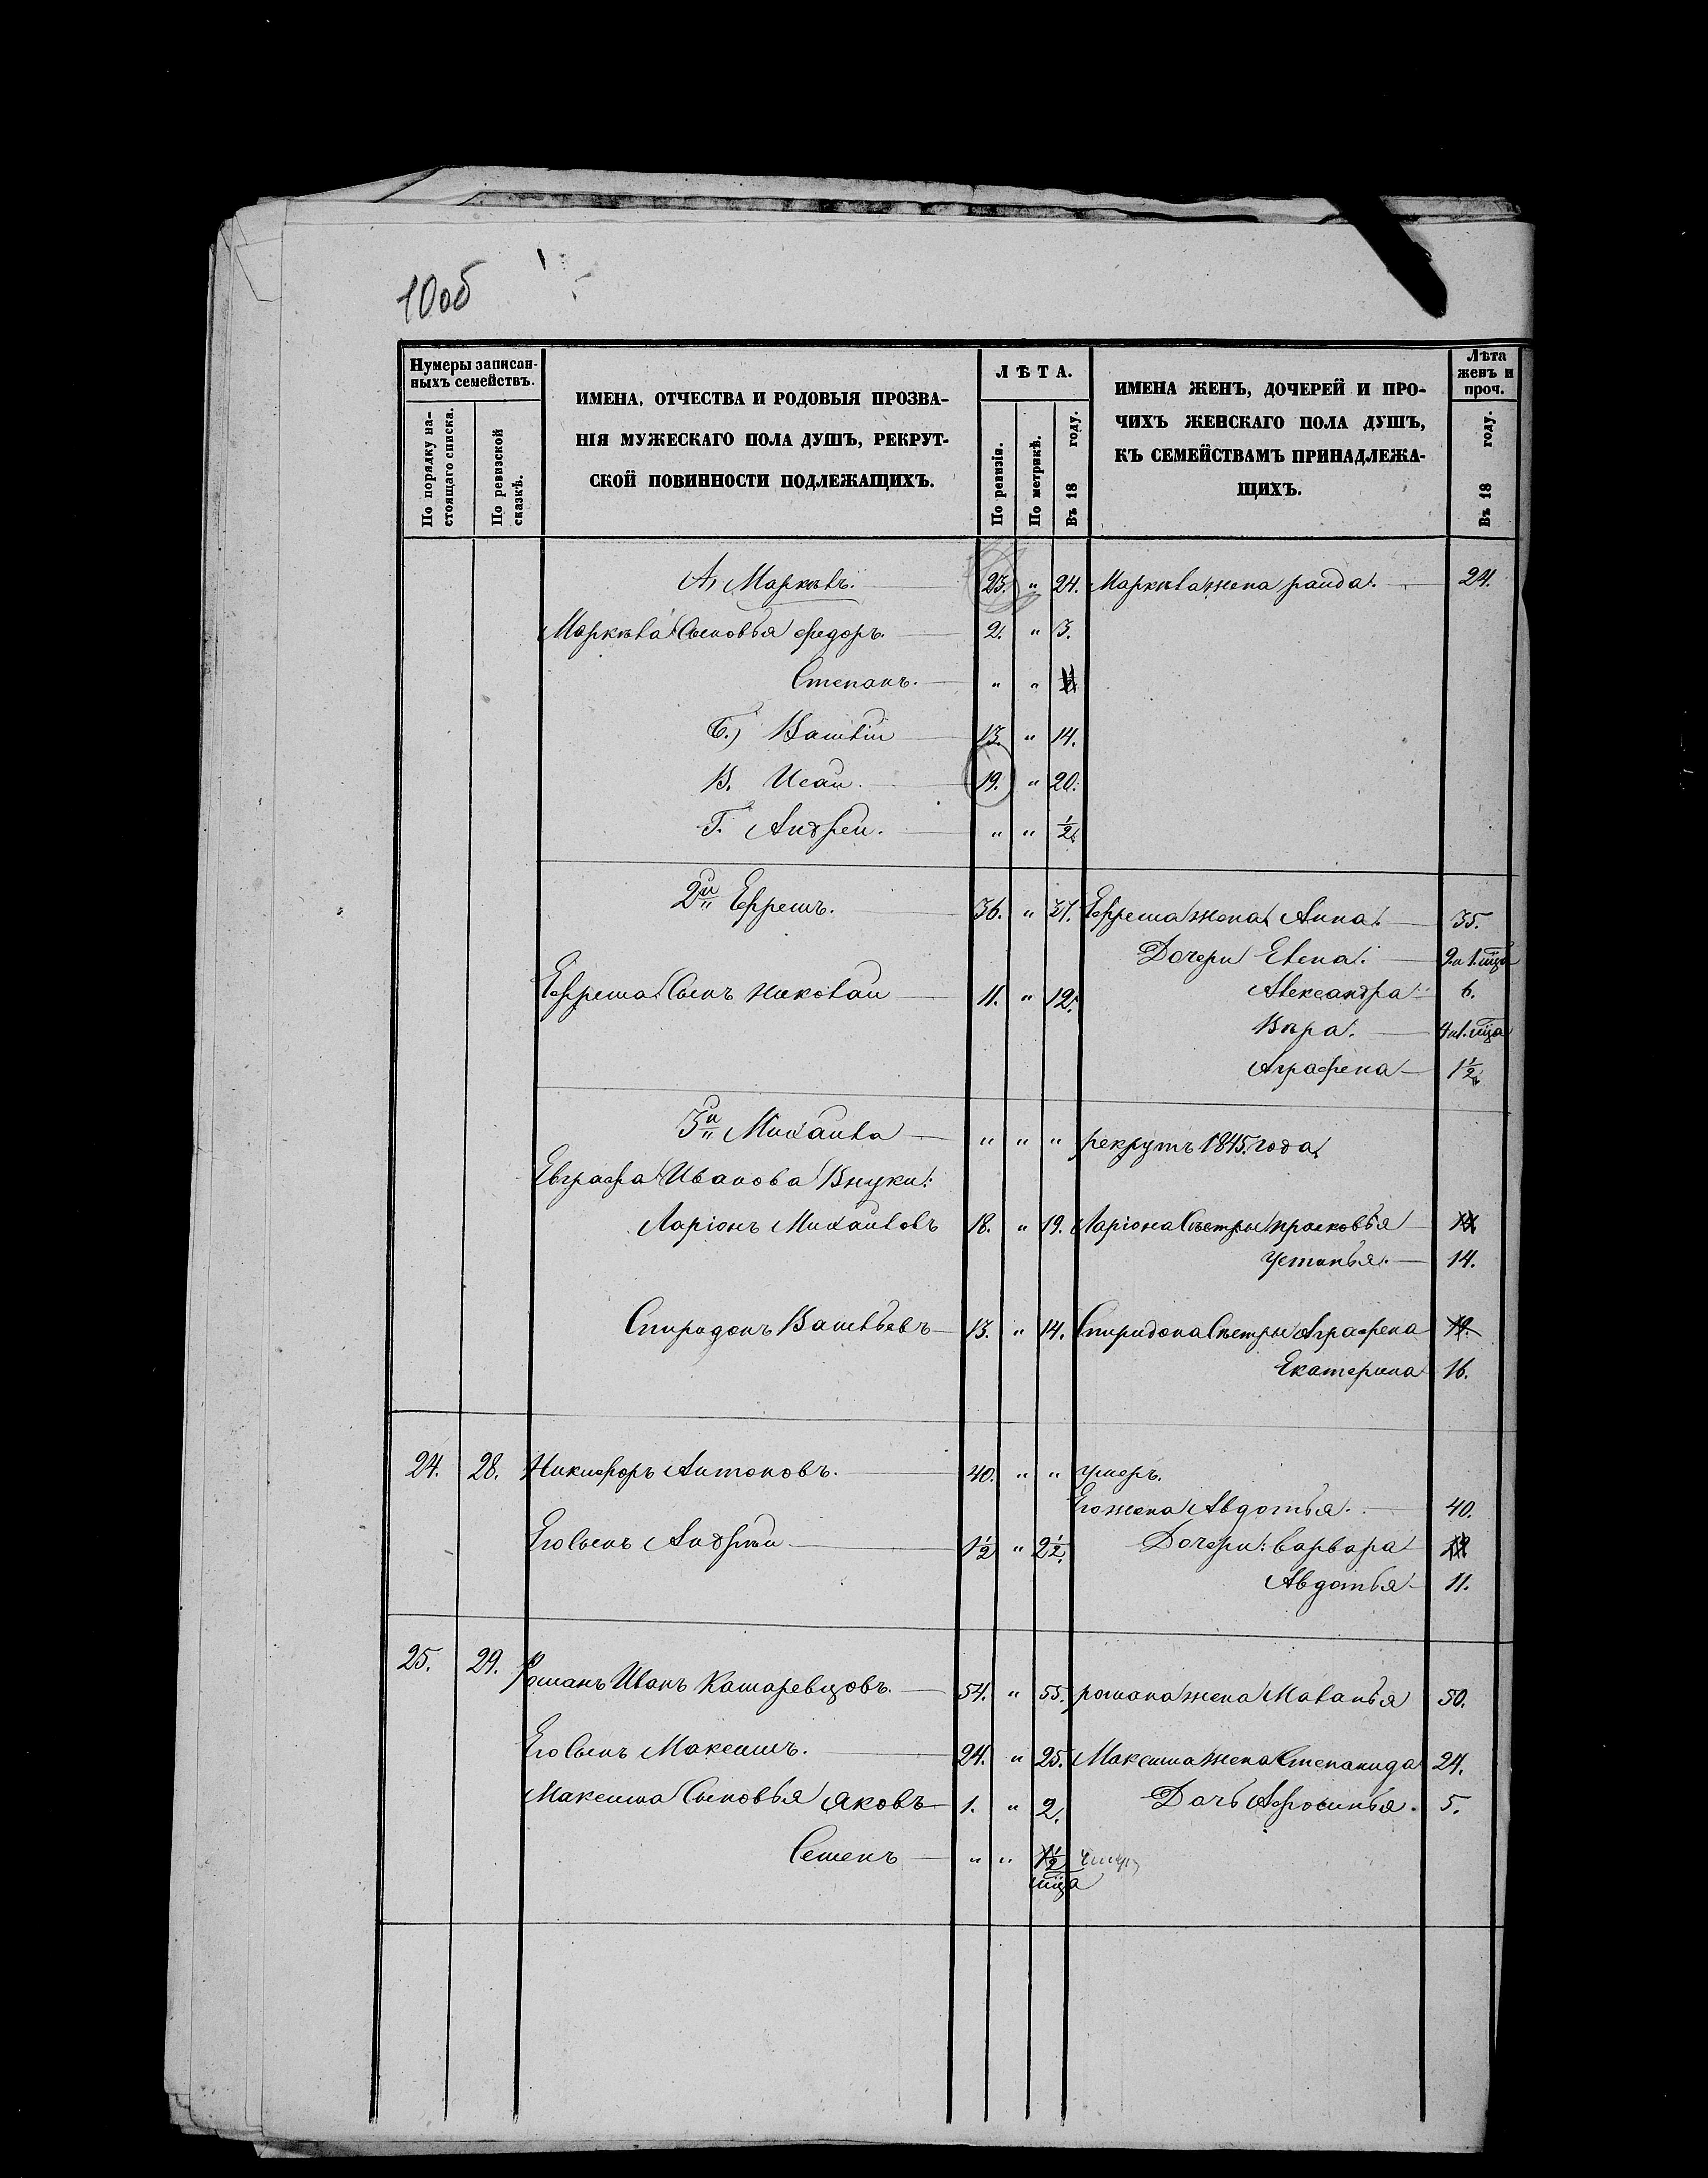 10об
Нумеры записан-
ныхъ семействъ.
По порядку на-
стоящаго списка.
По ревизской
сказкѣ.
ИМЕНА, ОТЧЕСТВА И РОДОВЫЯ ПРОЗВА-
НІЯ МУЖЕСКАГО ПОЛА ДУШЪ, РЕКРУТ-
СКОЙ ПОВИННОСТИ ПОДЛЕЖАЩИХЪ.
ЛѢТА.
По ревизіи.
По метрикѣ.
Въ 18 году.
ИМЕНА ЖЕНЪ, ДОЧЕРЕЙ И ПРО-
ЧИХЪ ЖЕНСКАГО ПОЛА ДУШЪ,
КЪ СЕМЕЙСТВАМЪ ПРИНАДЛЕЖА-
ЩИХЪ.
Лѣта
женъ и
проч.
Въ 18 году.
А, Маркѣлъ. 23. " 24. Маркѣла жена раида. 24.
Маркѣла Сыновья федоръ. 2. " 3.
Степанъ. " "
Б.) Василій 13. " 14.
В. Исаи. 19. " 20.
Г. Андреи. " " 1/2
2й Ефремъ. 36. " 37. Ефрема жена Анна. 35.
Дочери Елена. 9 и 1. мца
Ефрема Сынъ николаи 11. " 12. Александра 6.
Вѣра. 4 и 1. мца
Аграфена 1 1/2
3й Михаила " " " рекрутъ 1845. года
Евграфа Иванова Внуки:
Ларіонъ Михаиловъ 18. " 19. Ларіона Сѣстры прасковья
Устинья. 14.
Спиридонъ Васильевъ 13. " 14. Спиридона Сѣстры Аграфена 19.
Екатерина 16.
24. 28. Никифоръ Антоновъ. 40. " " умеръ.
Его жена Авдотья. 40.
Его Сынъ Андрѣи 1 1/2 " 2 1/2. Дочери: варвара
Авдотья 11.
25. 29. Романъ Иванъ Кашаревцовъ. 54. " 55. романа жена Маланья 50.
Его Сынъ Максимъ. 24. " 25. Максима жена Степанида 24.
Максима Сыновья яковъ 1. " 2. Дочь Афросинья. 5.
Семенъ " " 1 1/2 умеръ
мца